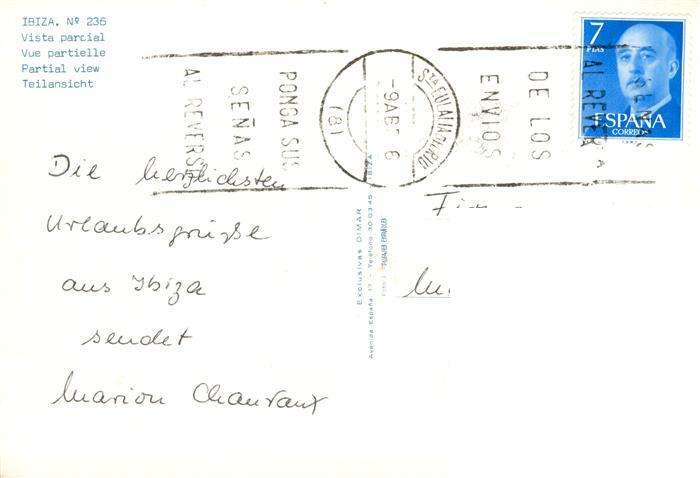 IBIZA. Nº 236
Vista parcial
Vue partielle
Partial view
Teilansicht
7
PTAS
ESPAÑA
CORREOS
PONGA SUS
SEÑAS
AL REVERSO
(81)
STA EULALIA DEL RIO
-9 AB
6
AL REVERSO
DE LOS
ENVIOS
Die herzlichsten
Urlaubsgrüße
aus Ibiza
sendet
Marion
Exclusivas DIMAR
Avenida España, 17 - Teléfono 30 03 45 - IBIZA